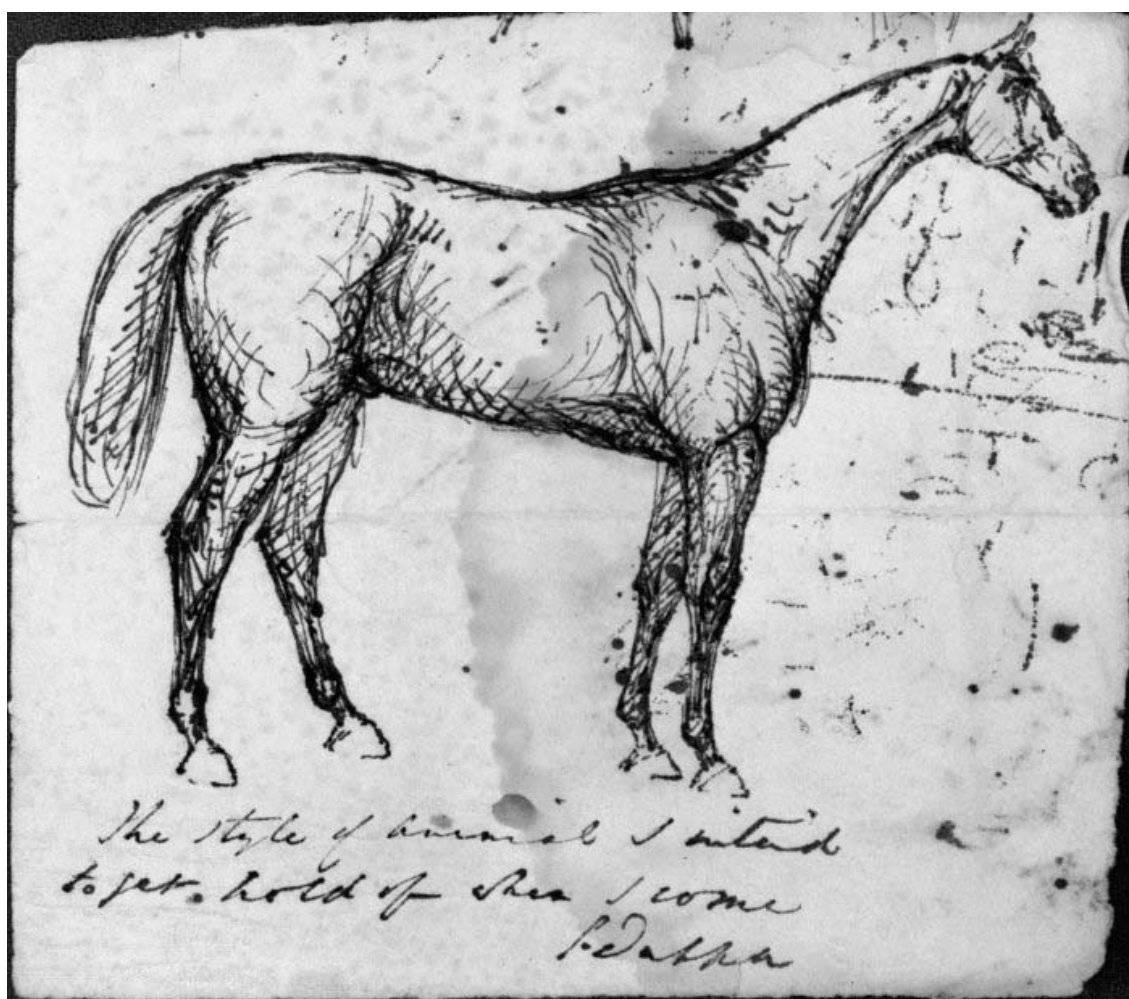 The style of animal I intend
to get hold of when I come